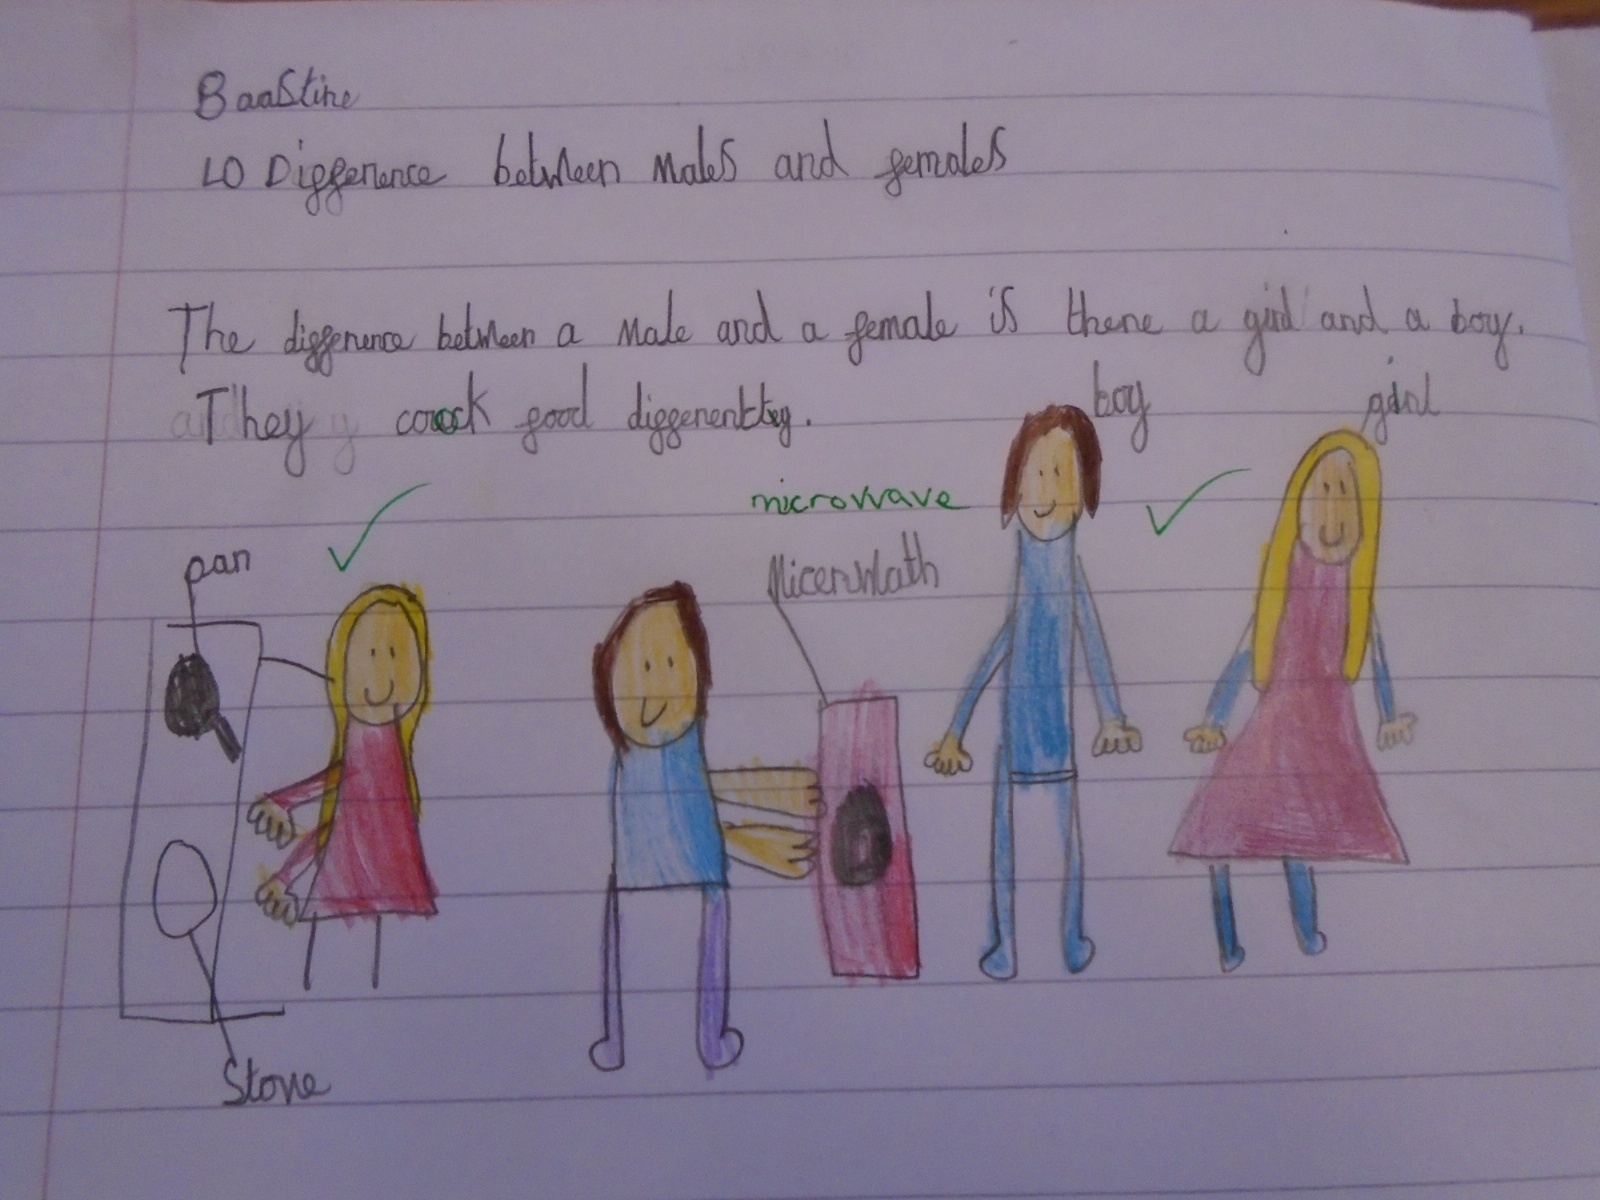 Baastine
LO Difference between Males and females
The difference between a Male and a female is there a girl and a boy.
They coock food differently.
boy
girl
microwave
pan
Micerwath
Stove